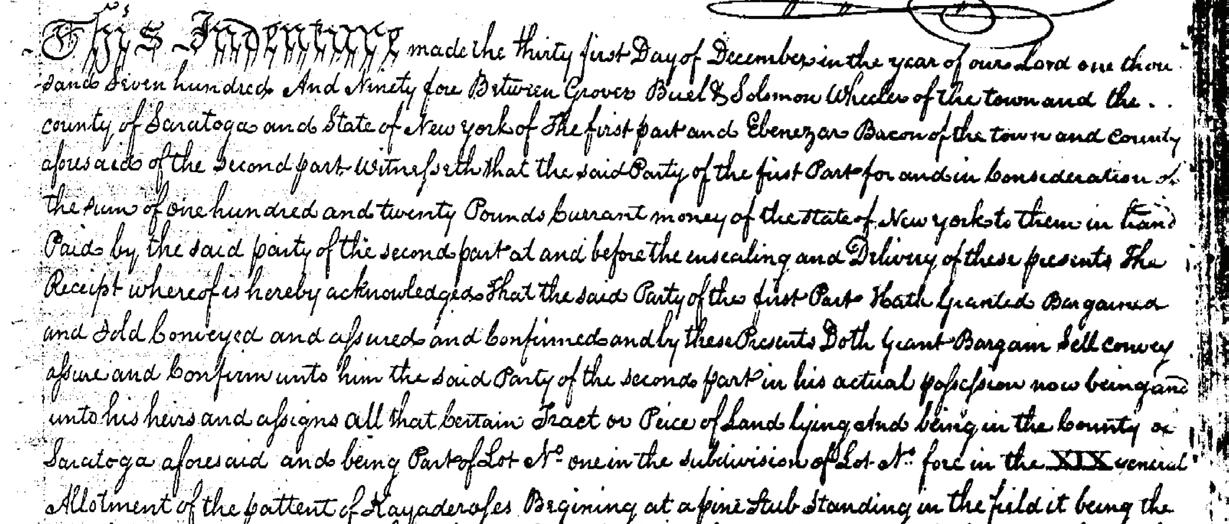 This Indenture made the thirty first Day of December in the year of our Lord one thou
sand seven hundred And Ninety fore Between Grover Buel & Solomon Wheeler of the town and the . .
county of Saratoga and State of New york of The first part and Ebenezar Bacon of the town and county
aforesaid of the Second part Witnesseth that the said Party of the first Part for and in Consideration of
the sum of one hundred and twenty Pounds Currant money of the state of New york to them in hand
Paid by the said party of the second part at and before the ensealing and Delivery of these presents The
Receipt whereof is hereby acknowledged That the said Party of the first Part Hath Granted Bargained
and Sold Conveyed and assured and Confirmed and by these Presents Doth Grant Bargain Sell convey
assure and Confirm unto him the said Party of the second part in his actual possession now being and
unto his heirs and assigns all that Certain Tract or Peice of Land lying And being in the County of
Saratoga aforesaid and being Part of Lot No. one in the subdivision of Lot No. fore in the XIX general
Allotment of the pattent of Kayaderoses Begining at a pine Stub Standing in the field it being the